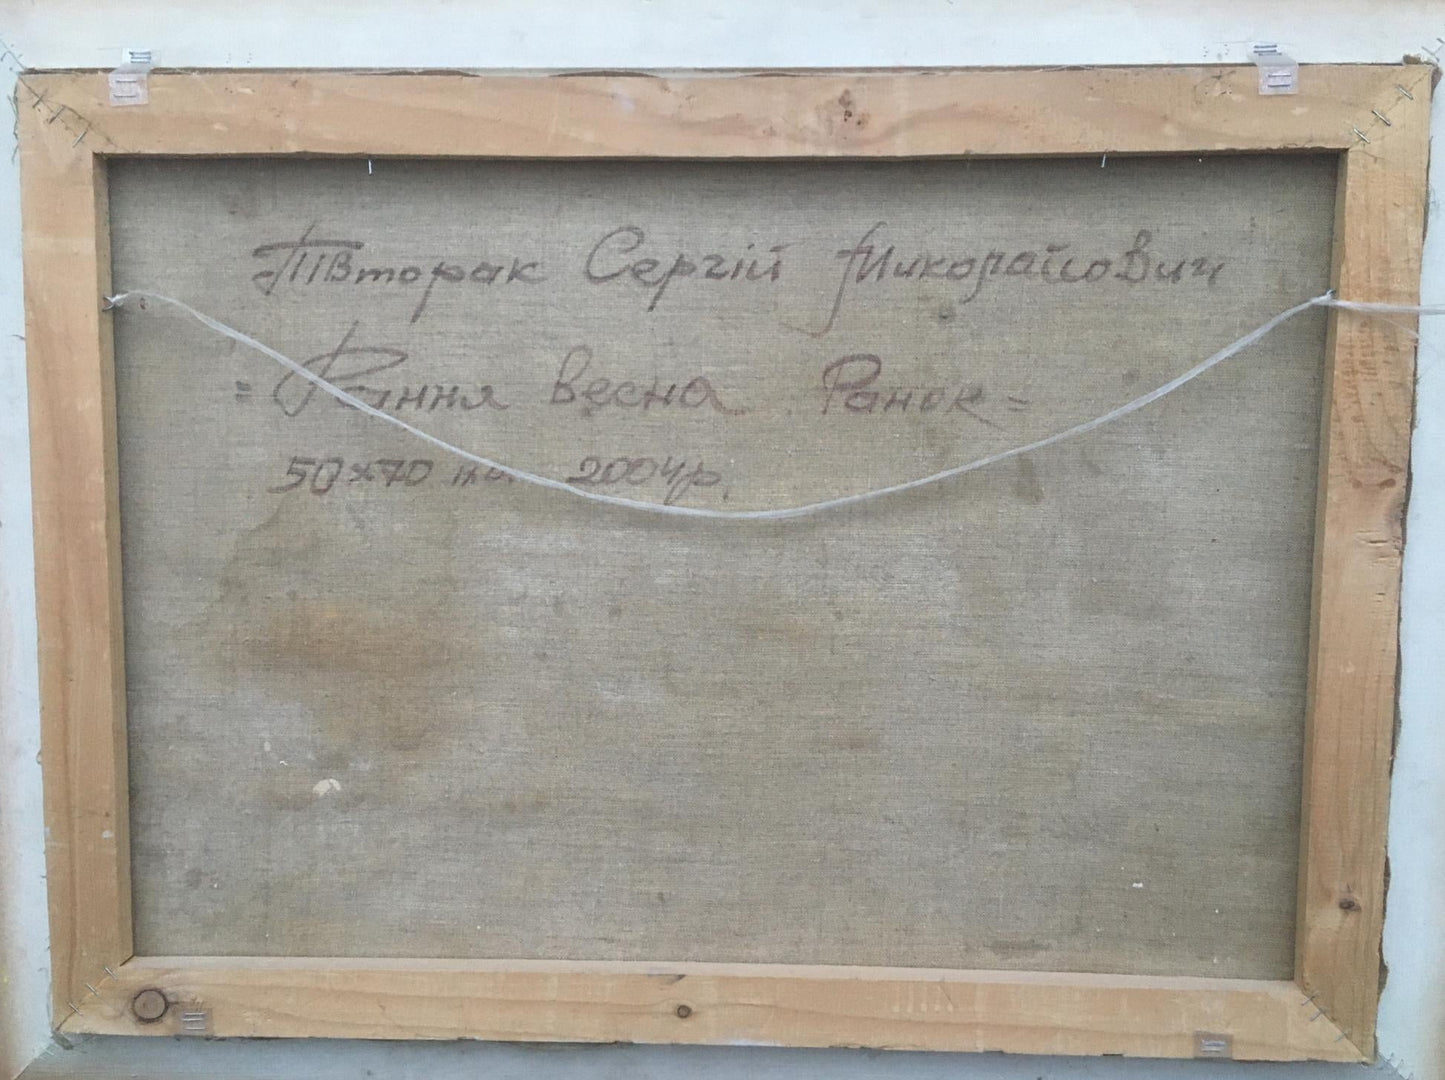 Півторак Сергій Миколайович
= Рання весна. Ранок =
50х70 2004р.